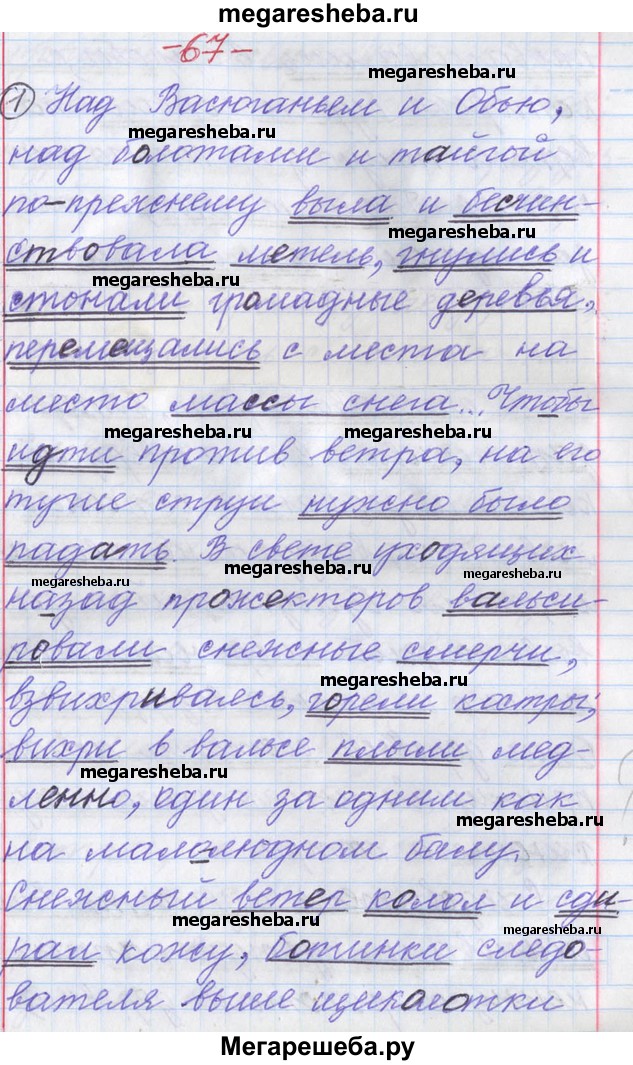 megaresheba.ru
-67-
megaresheba.ru
1 Над Васюганьем и Обью,
megaresheba.ru
над болотами и тайгой
по-прежнему выла и бесчин-
megaresheba.ru
ствовала метель, гнулись и
megaresheba.ru
стонали громадные деревья,
перемещались с места на
место массы снега... Чтобы
megaresheba.ru
megaresheba.ru
идти против ветра, на его
тугие струи нужно было
падать. В свете уходящих
megaresheba.ru
megaresheba.ru
megaresheba.ru
назад прожекторов вальси-
ровали снежные смерчи,
megaresheba.ru
взвихриваясь, горели костры;
вихри в вальсе плыли мед-
megaresheba.ru
ленно, один за одним как
megaresheba.ru
на малолюдном балу.
Снежный ветер колол и сди-
megaresheba.ru
megaresheba.ru
рал кожу, ботинки следо-
вателя выше щиколотки
Мегарешеба.ру